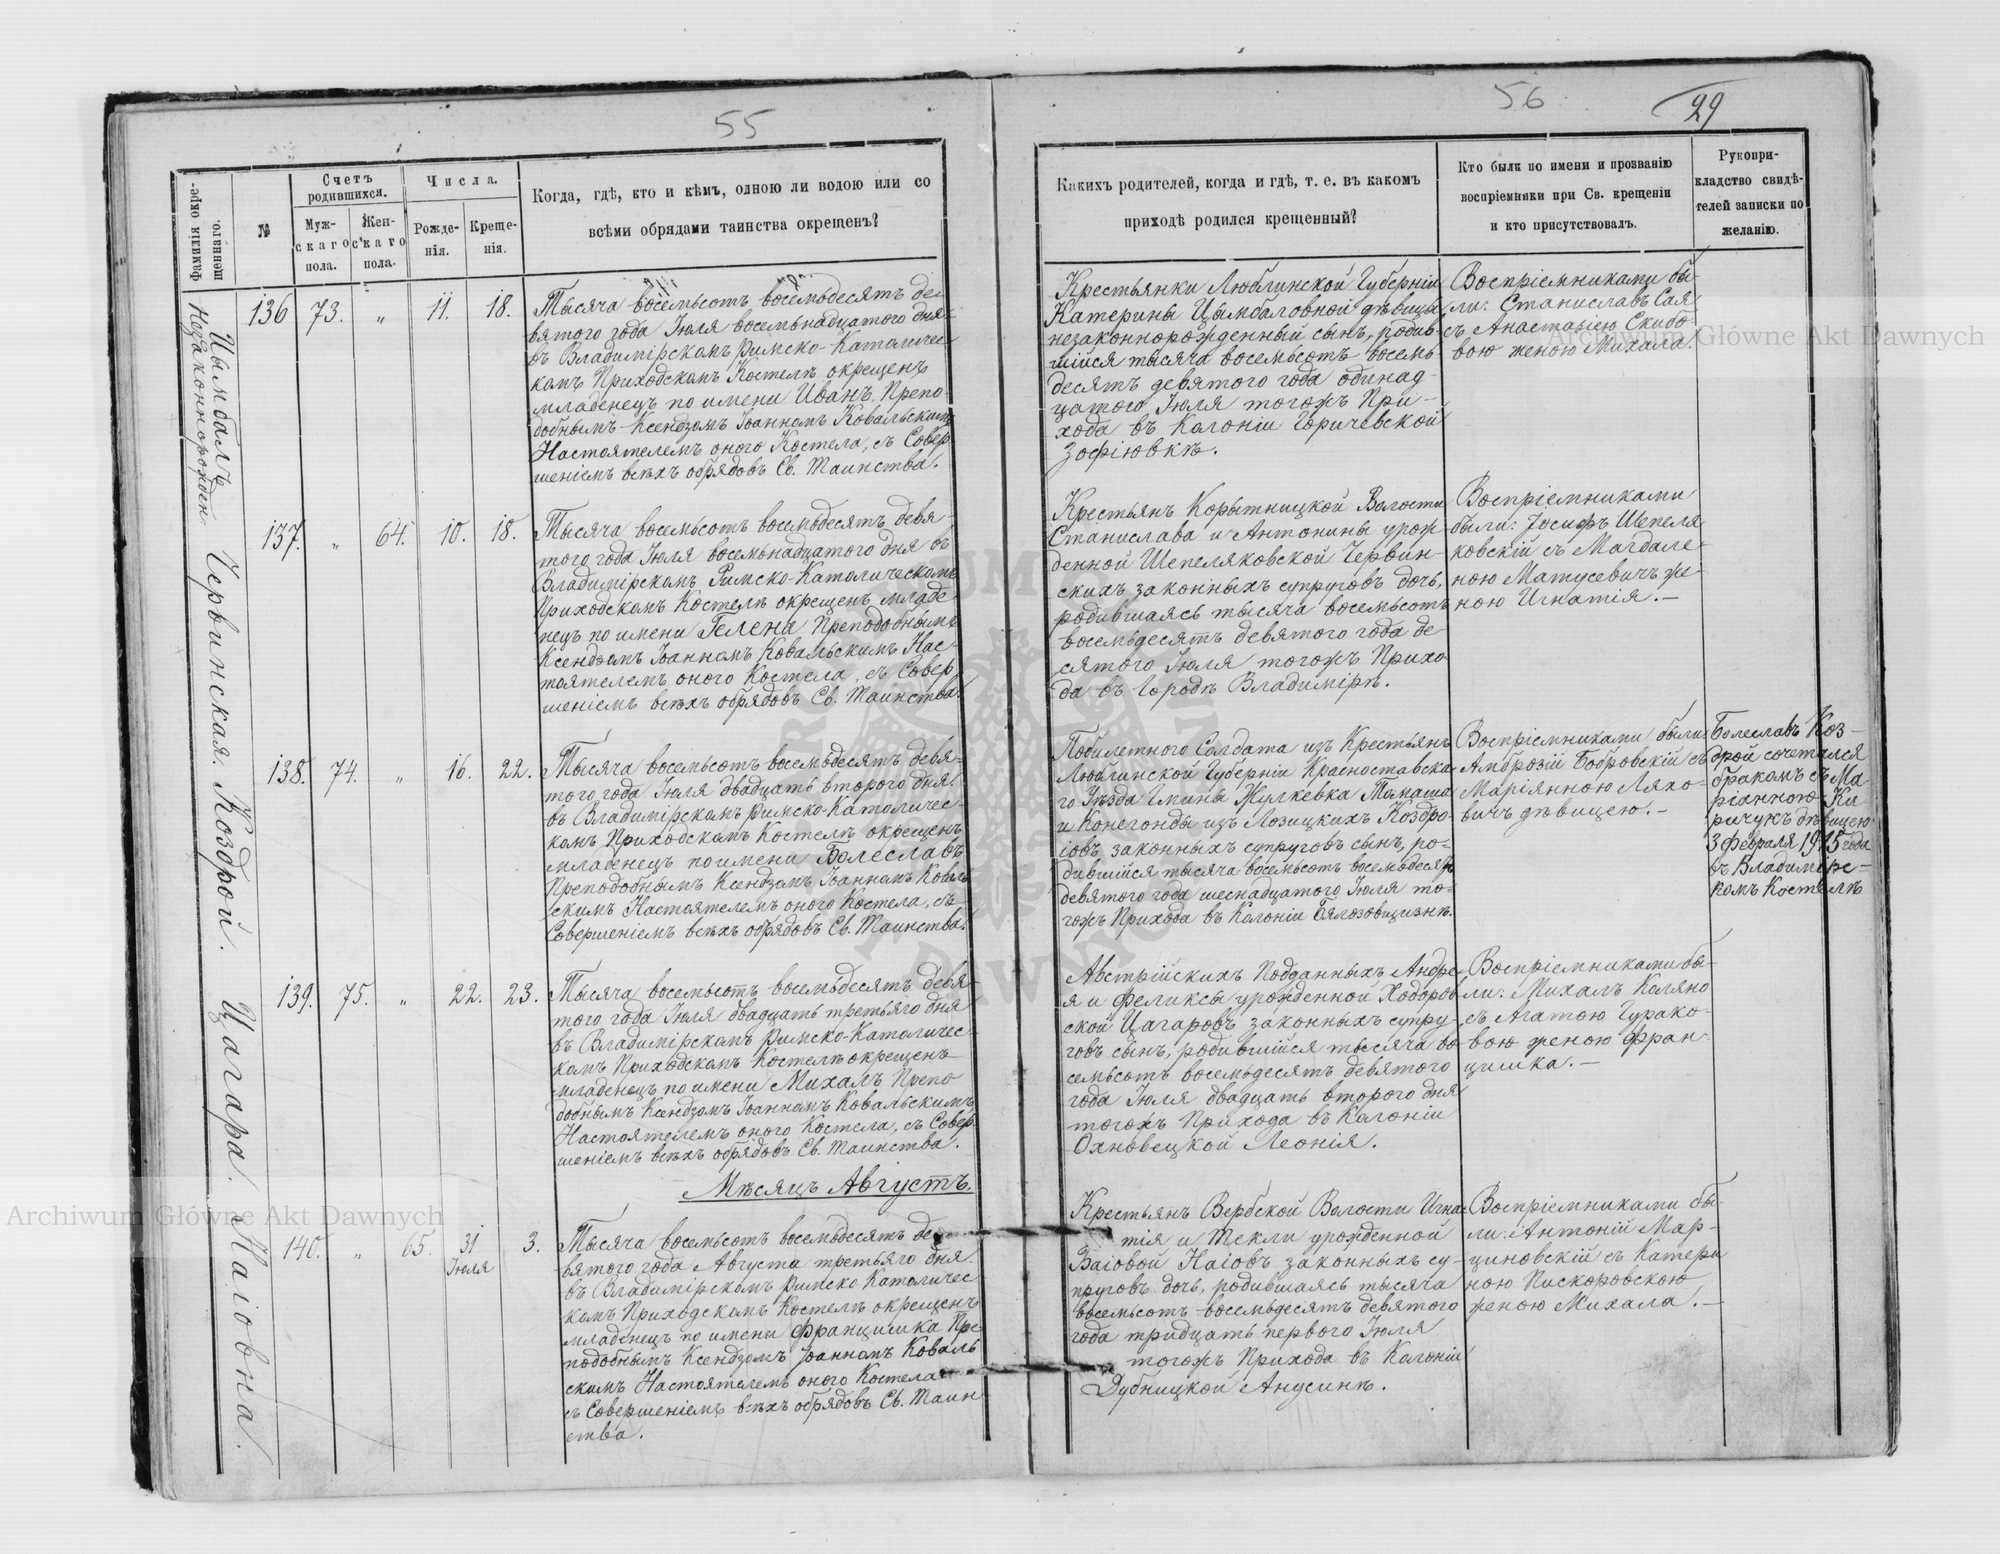 55
56
29
Фамилія окре-
щеннаго.
№
Счетъ
родившихся.
Муж-
скаго
пола.
Жен-
скаго
пола.
Числа.
Рожде-
нія.
Креще-
нія.
Когда, гдѣ, кто и кѣмъ, одною ли водою или со
всѣми обрядами таинства окрещенъ?
Какихъ родителей, когда и гдѣ, т. е. въ какомъ
приходѣ родился крещенный?
Кто были по имени и прозванію
воспріемники при Св. крещеніи
и кто присутствовалъ.
Рукопри-
кладство свидѣ-
телей записки по
желанію.
Цымбалъ
Незаконнорожден.
136 73. „ 11. 18.
Тысяча восемьсотъ восемьдесятъ де-
вятого года Іюля восемьнадцатого дня
въ Владимірскомъ Римско-Католичес-
комъ Приходскомъ Костелѣ окрещенъ
младенецъ по имени Иванъ Препо-
добнымъ Ксендзомъ Іоанномъ Ковальскимъ
Настоятелемъ оного Костела, съ Совер-
шеніемъ всѣхъ обрядовъ Св. Таинства.
Крестьянки Люблинской Губерніи
Катерины Цымбаловной дѣвицы
незаконнорожденный сынъ, родив-
шійся тысяча восемьсотъ восемь-
десятъ девятого года одинад-
цатого Іюля тогожъ При-
хода въ Колоніи Горичевской
Зофіювкѣ.
Воспріемниками бы-
ли: Станиславъ Сая
съ Анастасіею Скибо-
вою женою Михала.
Червинская.
137. „ 64. 10. 18.
Тысяча восемьсотъ восемьдесятъ девя-
того года Іюля восемьнадцатого дня въ
Владимірскомъ Римско-Католическомъ
Приходскомъ Костелѣ окрещенъ младе-
нецъ по имени Гелена Преподобнымъ
Ксендзомъ Іоанномъ Ковальскимъ Нас-
тоятелемъ оного Костела, съ Совер-
шеніемъ всѣхъ обрядовъ Св. Таинства.
Крестьянъ Корытницкой Волости
Станислава и Антонины урож-
денной Шепеляковской Червин-
скихъ законныхъ супруговъ дочь,
родившаясь тысяча восемьсотъ
восемьдесятъ девятого года де-
сятого Іюля тогожъ Прихо-
да въ Городѣ Владимірѣ.
Воспріемниками
были: Іосифъ Шепеля-
ковскій съ Магдале-
ною Матусевичъ же-
ною Игнатія. –
Коздрой.
138. 74. „ 16. 22.
Тысяча восемьсотъ восемьдесятъ девя-
того года Іюля двадцать второго дня
въ Владимірскомъ Римско-Католичес-
комъ Приходскомъ Костелѣ окрещенъ
младенецъ по имени Болеславъ
Преподобнымъ Ксендзомъ Іоанномъ Коваль-
скимъ Настоятелемъ оного Костела, съ
Совершеніемъ всѣхъ обрядовъ Св. Таинства.
Побилетного Солдата изъ Крестьянъ
Люблинской Губерніи Красноставска-
го Уѣзда Гмины Жулкевка Томаша
и Конегонды изъ Лозицкихъ Коздро-
іовъ, законныхъ супруговъ сынъ, ро-
дившійся тысяча восемьсотъ восемьдесятъ
девятого года шеснадцатого Іюля то-
гожъ Прихода въ Колоніи Бялозовщизнѣ.
Воспріемниками были
Амброзій Бобровскій съ
Маріянною Ляхо-
вичъ дѣвицею. –
Болеславъ Коз-
дрой сочетался
бракомъ съ Ма-
ріанною Ки-
ричукъ дѣвицею
3 февраля 1915 года
въ Владимірс-
комъ Костелѣ
Цагара.
139. 75. „ 22. 23.
Тысяча восемьсотъ восемьдесятъ девя-
того года Іюля двадцать третьяго дня
въ Владимірскомъ Римско-Католичес-
комъ Приходскомъ Костелѣ окрещенъ
младенецъ по имени Михалъ Препо-
добнымъ Ксендзомъ Іоанномъ Ковальскимъ
Настоятелемъ оного Костела, съ Совер-
шеніемъ всѣхъ обрядовъ Св. Таинства.
Австрійскихъ Подданныхъ Андре-
я и Феликсы урожденной Ходоров-
ской Цагаровъ законныхъ супру-
говъ сынъ, родившійся тысяча во-
семьсотъ восемьдесятъ девятого
года Іюля двадцать второго дня
тогожъ Прихода въ Колоніи
Охновецкой Леонія.
Воспріемниками бы-
ли: Михалъ Коляно
съ Агатою Гурако-
вою женою Фран-
цишка. –
Мѣсяцъ Августъ.
Наіовна.
140. „ 65. 31 Іюля 3.
Тысяча восемьсотъ восемьдесятъ де-
вятого года Августа третьяго дня
въ Владимірскомъ Римско Католичес-
комъ Приходскомъ Костелѣ окрещенъ
младенецъ по имени Францишка Пре-
подобнымъ Ксендзомъ Іоанномъ Коваль-
скимъ Настоятелемъ оного Костела
съ Совершеніемъ всѣхъ обрядовъ Св. Таин-
ства.
Крестьянъ Вербской Волости Игна-
тія и Текли урожденной
Баіовой Наіовъ законныхъ су-
пруговъ дочь, родившаясь тысяча
восемьсотъ восемьдесятъ девятого
года тридцать первого Іюля
тогожъ Прихода въ Колоніи
Дубницкой Анусинѣ.
Воспріемниками бы-
ли: Антоній Мар-
циновскій съ Катери-
ною Пискоровскою
женою Михала. –
Archiwum Główne Akt Dawnych
Archiwum Główne Akt Dawnych